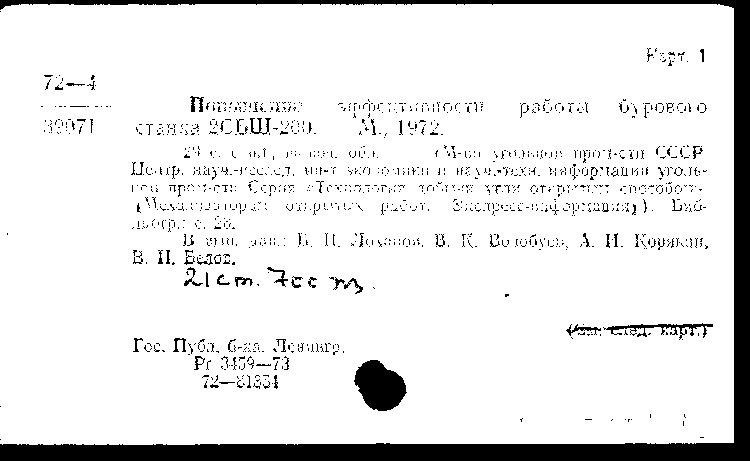 Карт. 1
72—4
39071
Повышение эффективности работы бурового
станка 2СБШ-200. М., 1972.
29 с. с ил., включ. обл. (М-во угольной пром-сти СССР
Центр. науч.-исслед. ин-т экономики и науч.-техн. информации уголь-
ной пром-сти Серия «Технология добычи угля открытым способом.
(Механизаторам открытых работ. Экспресс-информация»). Биб-
лиогр.: с. 28.
В вып. дан.: В. К. А. И. Корякин,
В. П. Белов.
21 cm. 700
(см. след. карт.)
Гос. Публ. б-ка. Ленингр.
Рг 3459—73
72—81354